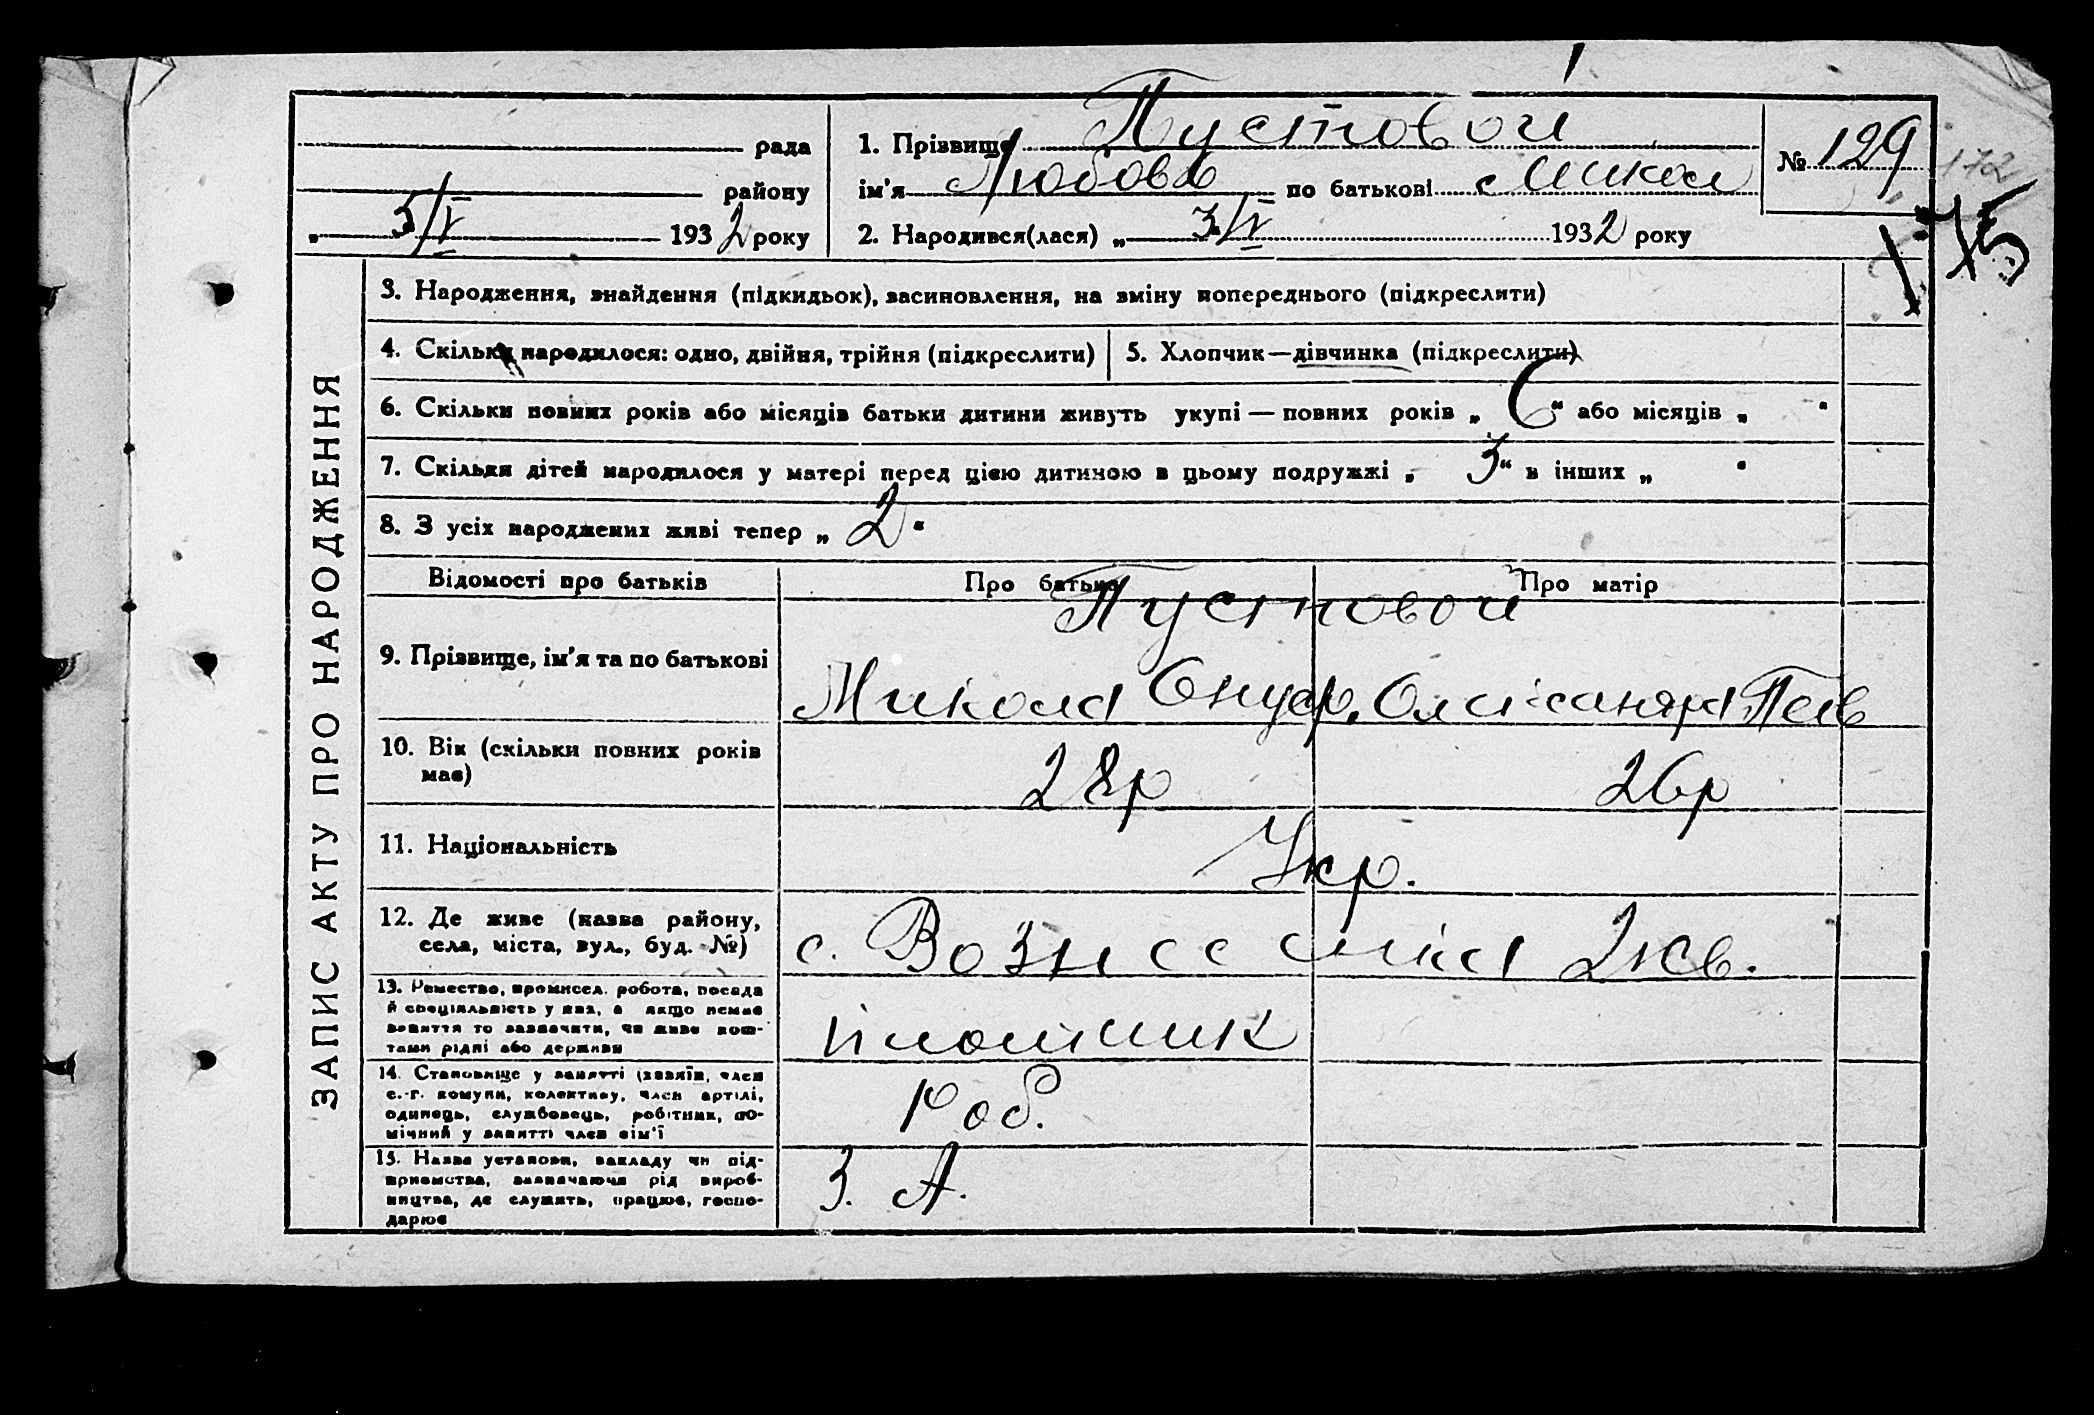 рада
району
„ 5/V 1932 року
1. Прізвище Пустовой
ім'я Любовь по батькові Микол
№ 129
172
175
2. Народився(лася) „ 3/V 1932 року
ЗАПИС АКТУ ПРО НАРОДЖЕННЯ
3. Народження, знайдення (підкидьок), засиновлення, на зміну попереднього (підкреслити)
4. Скільки народилося: одно, двійня, трійня (підкреслити)
5. Хлопчик—дівчинка (підкреслити)
6. Скільки повних років або місяців батьки дитини живуть укупі — повних років „ 6 “ або місяців „ “
7. Скільки дітей народилося у матері перед цією дитиною в цьому подружжі „ 3 “ в інших „ “
8. З усіх народжених живі тепер „ 2 “
Відомості про батьків Про батька Про матір
Пустовой
9. Прізвище, ім'я та по батькові
Микола Онуфр. Олександра
10. Вік (скільки повних років має)
28р 26р
11. Національність
Укр.
12. Де живе (назва району,
села, міста, вул., буд. №)
с. Вознесенка
13. Ремество, промисел, робота, посада
й спеціяльність у них, а якщо немає
заняття то зазначити, чи живе кош-
тами рідні або держави
плотник
14. Становище у занятті (хазяїн, член
с.-г. комуни, колективу, член артілі,
одинець, службовець, робітник, по-
мічний у занятті член сім'ї
Роб.
15. Назва установи, закладу чи під-
приємства, зазначаючи рід вироб-
ництва, де служить, працює, госпо-
дарює
З. А.